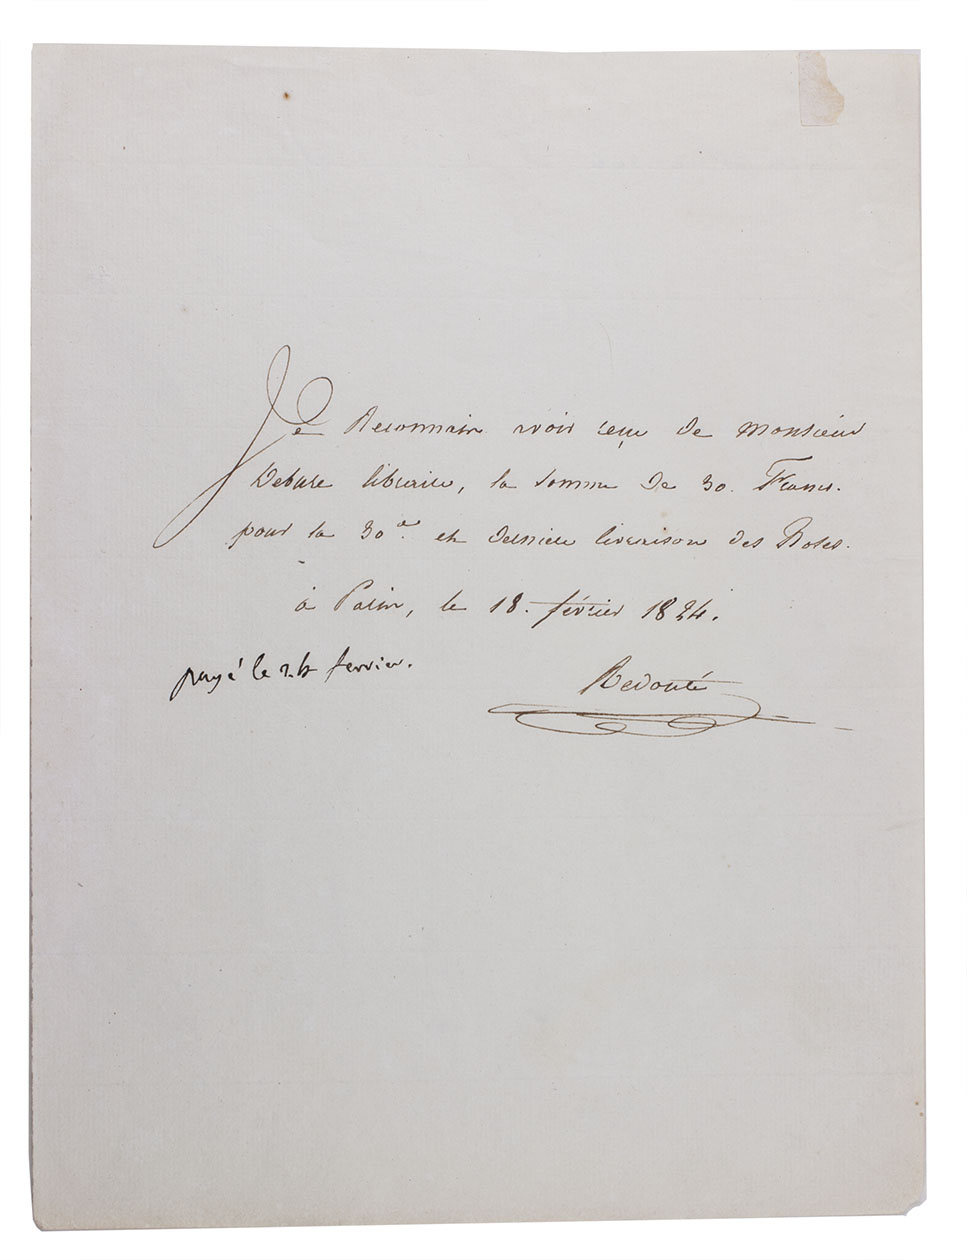 Je Reconnais avoir reçu de Monsieur
Debure libraire, la somme de 30. Francs.
pour la 30e. et derniere livraison des Roses.
à Paris, le 18. février 1824.
payé le fevrier.
Redouté